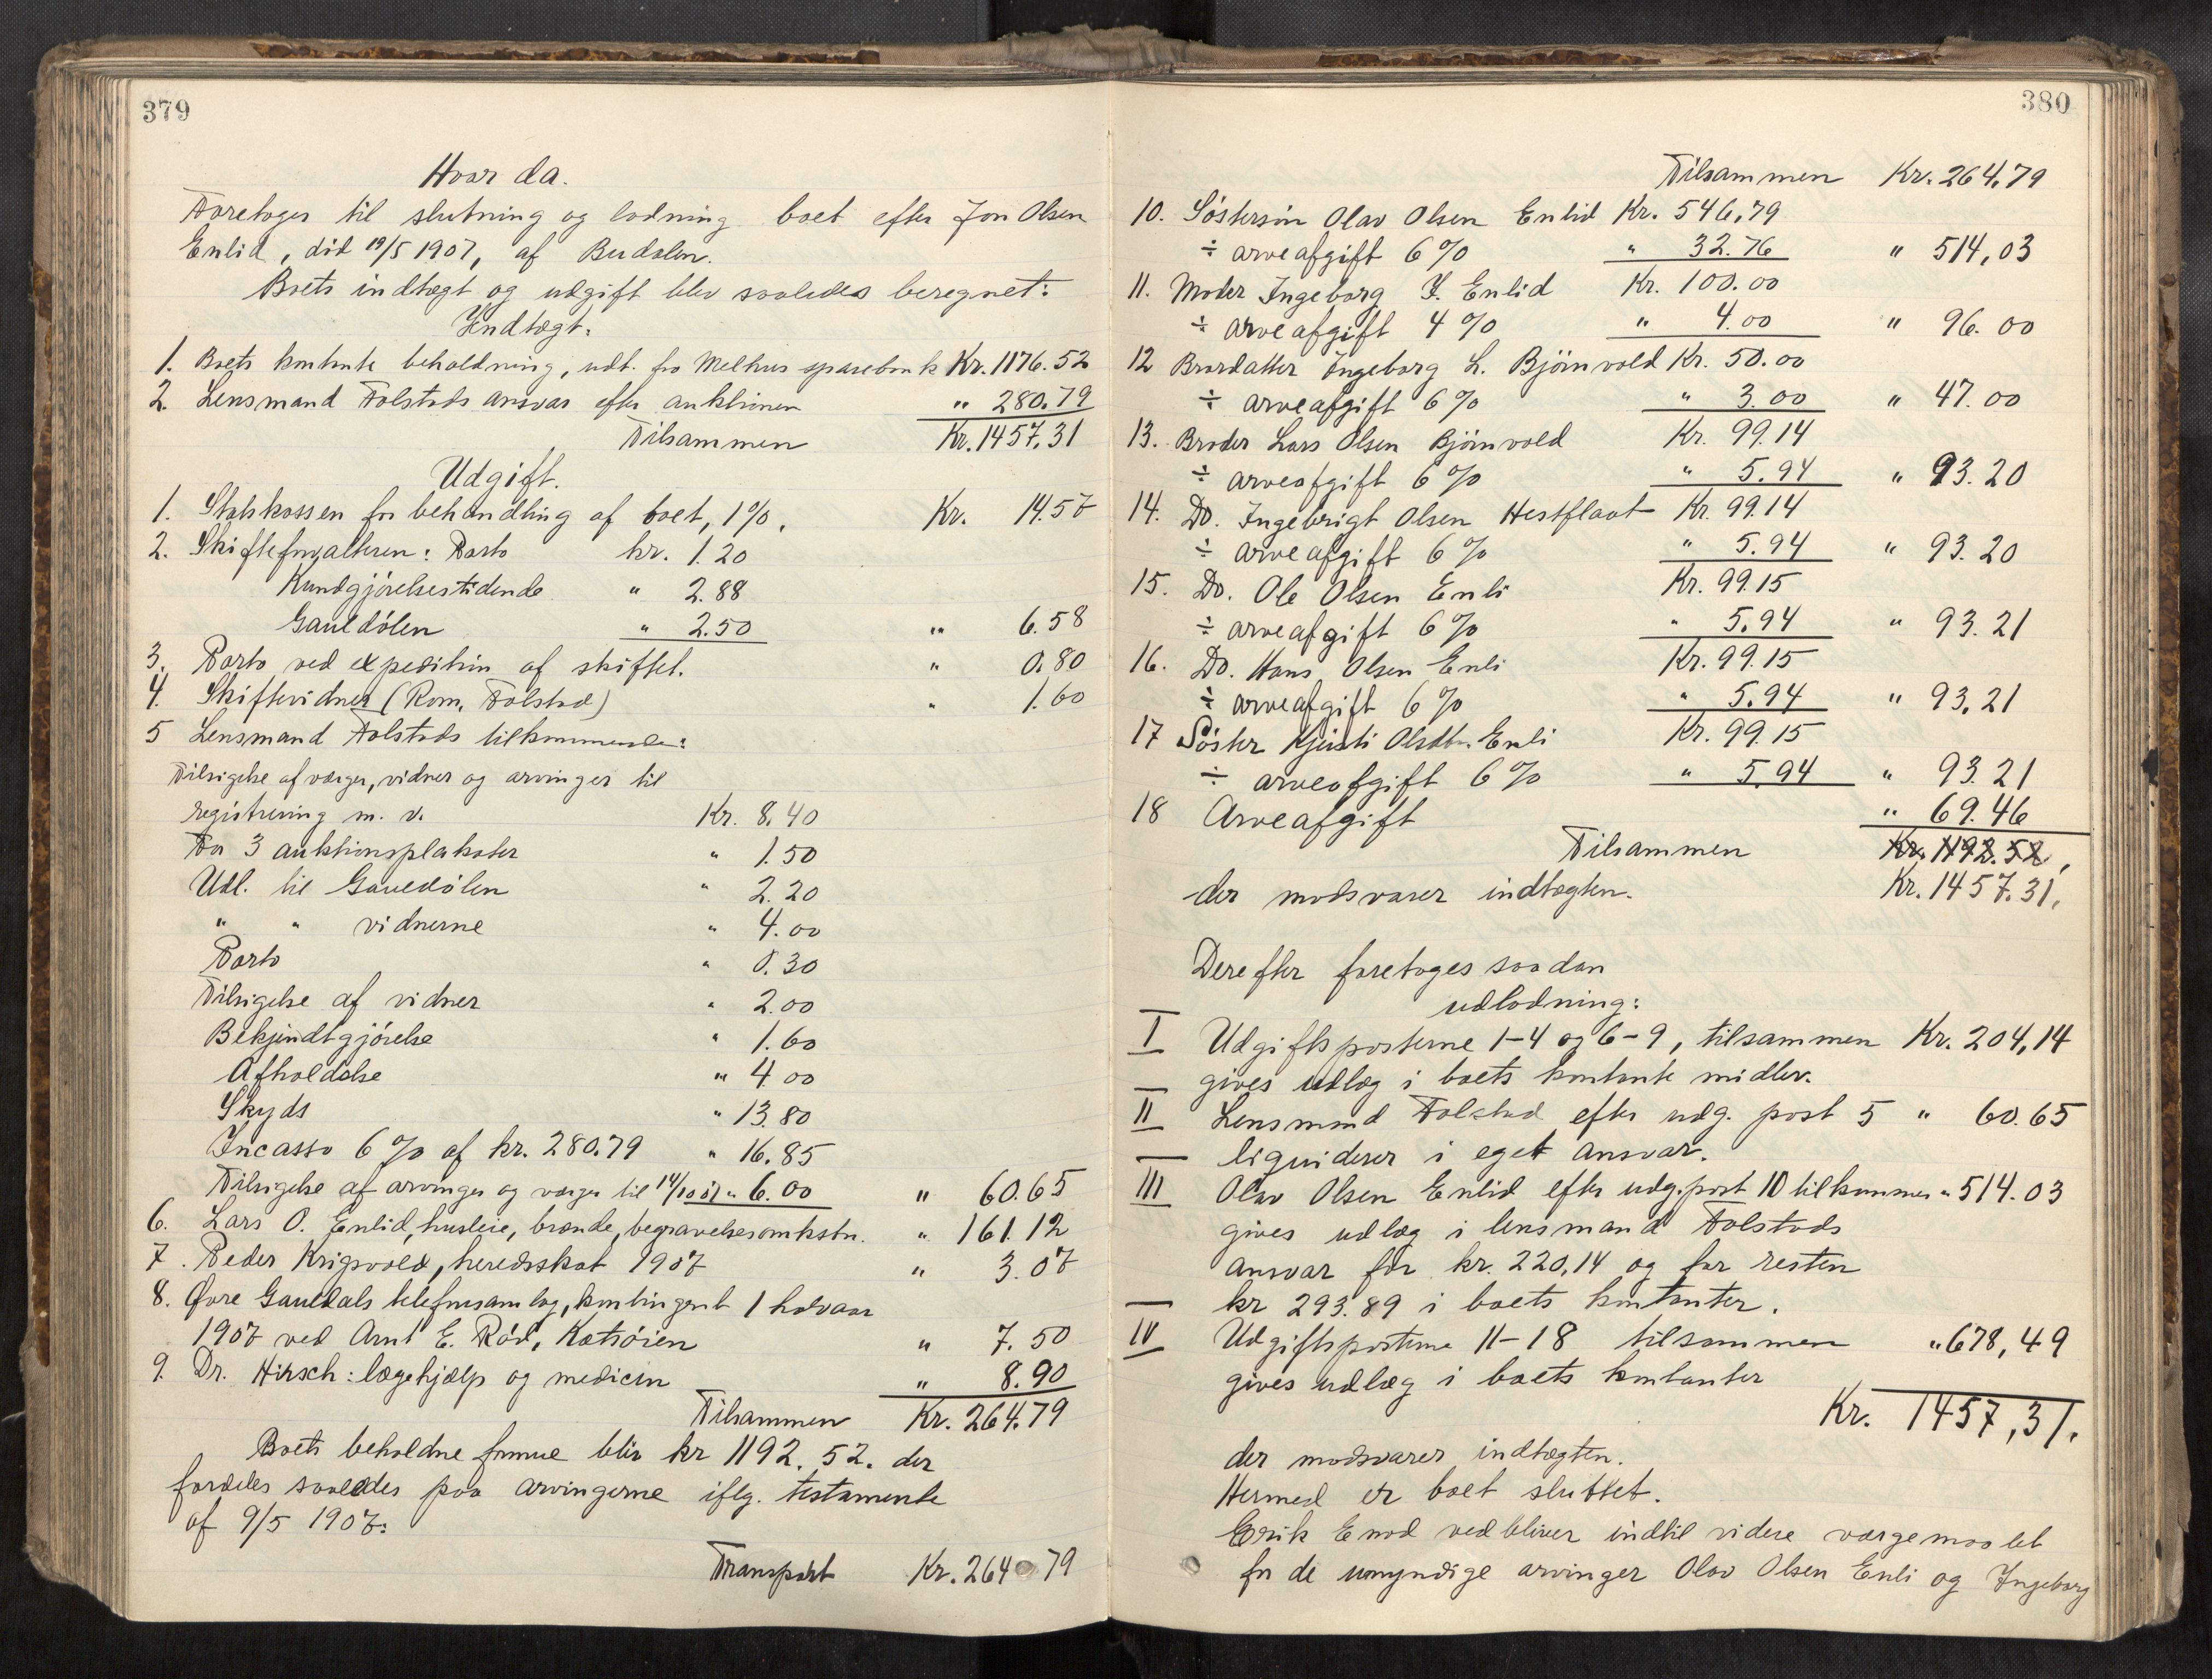 379
Hvor da.
Foretoges til slutning og lodning boet efter Jon Olsen
Enlid, död 19/5 1907, af Budalen.
Boets indtægt og udgift blev saaledes beregnet:
Indtægt:
1. Boets kontante beholdning, udt. fra Melhus sparebank Kr. 1176.52
2. Lensmand Folstads ansvar efter auktionen " 280.79
Tilsammen Kr. 1457.31
Udgift.
1. Statskassen for behandling af boet, 1%. Kr. 14.57
2. Skifteforvalteren: Porto kr. 1.20
Kundgjörelsestidende " 2.88
Gauldölen " 2.50 " 6.58
3. Porto ved expedition af skiftet. " 0.80
4. Skiftevidner (Rom, Folstad) " 1.60
5 Lensmand Folstads tilkommende:
Tilsigelse af værger, vidner og arvinger til
registrering m. v. Kr. 8.40
For 3 auktionsplakater " 1.50
Udl. til Gauldölen " 2.20
" " vidnerne " 4.00
Porto " 0.30
Tilsigelse af vidner " 2.00
Bekjendtgjörelse " 1.60
Afholdelse " 4.00
Skyds " 13.80
Incasso 6% af kr. 280.79 " 16.85
Tilsigelse af arvinger og værger til 14/10 07 " 6.00 " 60.65
6. Lars O. Enlid, husleie, brænde, begravelsesomkstn. " 161.12
7. Peder Krigsvold, heredsskat 1907 " 3.07
8. Övre Gauldals telefonsamlag, kontingent 1 halvaar
1907 ved Arnt E. Röd, Kotsöien " 7.50
9. Dr. Hirsch: lægehjælp og medicin " 8.90
Tilsammen Kr. 264.79
Boets beholdne formue blir kr 1192.52. der
fordeles saaledes paa arvingerne iflg. testamente
af 9/5 1907:
Transport Kr. 264.79
380
Tilsammen Kr. 264.79
10. Söstersön Olav Olsen Enlid Kr. 546.79
÷ arveafgift 6% " 32.76 " 514,03
11. Moder Ingeborg J. Enlid Kr. 100.00
÷ arveafgift 4% " 4.00 " 96.00
12 Brordatter Ingeborg L. Björnvold Kr. 50.00
÷ arveafgift 6% " 3.00 " 47.00
13. Broder Lars Olsen Björnvold Kr. 99.14
÷ arveafgift 6% " 5.94 " 93.20
14. Do. Ingebrigt Olsen Hestflaat Kr. 99.14
÷ arveafgift 6% " 5.94 " 93.20
15. Do. Ole Olsen Enli Kr. 99.15
÷ arveafgift 6% " 5.94 " 93.21
16. Do. Hans Olsen Enli Kr. 99.15
÷ arveafgift 6% " 5.94 " 93.21
17 Söster Kjersti Olsdtr. Enli Kr. 99.15
÷ arveafgift 6% " 5.94 " 93.21
18 Arveafgift " 69.46
Tilsammen Kr. 1192.52.
der modsvarer indtægten. Kr. 1457.31.
Derefter foretoges saadan
udlodning:
I Udgiftsposterne 1-4 og 6-9, tilsammen Kr. 204,14
gives udlæg i boets kontante midler.
II Lensmand Folstad efter udg. post 5 " 60.65
ligviderer i eget ansvar.
III Olav Olsen Enlid efter udg. post 10 tilkommer " 514.03
gives udlæg i lensmand Folstads
ansvar for kr. 220,14 og for resten
kr 293.89 i boets kontanter.
IV Udgiftsposterne 11-18 tilsammen " 678,49
gives udlæg i boets kontanter
Kr. 1457,31.
der modsvarer indtægten.
Hermed er boet sluttet.
Erik Enod vedbliver indtil videre værgemaalet
for de umyndige arvinger Olav Olsen Enli og Ingeborg